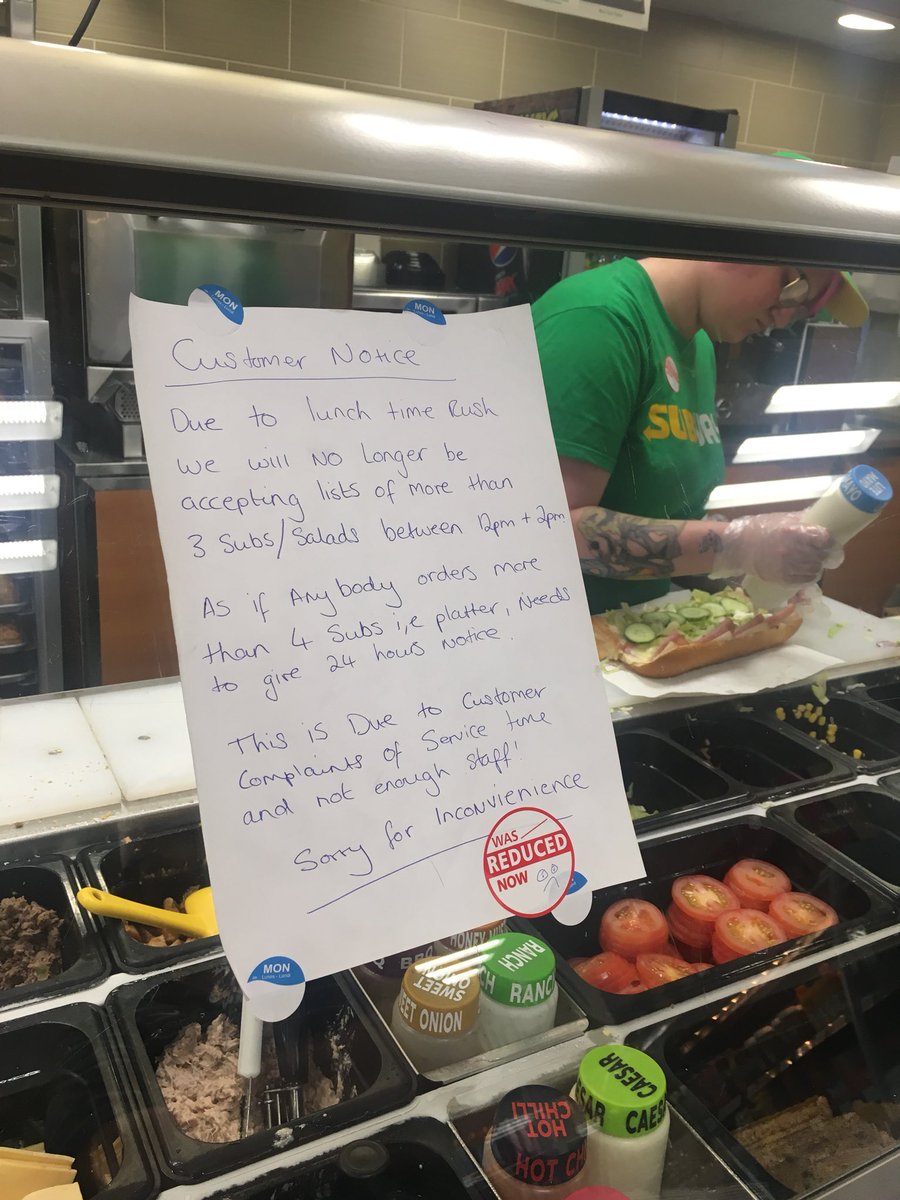 MON
MON
Customer Notice
Due to lunch time Rush
we will No Longer be
accepting lists of more than
3 Subs/Salads between 12pm + 2pm
As if Anybody orders more
than 4 Subs i,e platter, Needs
to give 24 hours Notice.
This is Due to Customer
Complaints of Service time
and not enough staff!
Sorry for Inconvienience
WAS
REDUCED
NOW
MON
Lunes - Lundi
SUBWAY
MAYO
HONEY MUS
BBQ
SWEET ONION
EET ONION
RANCH
CH RANC
CAESAR
SAR CAES
HOT CHILLI
HOT CH